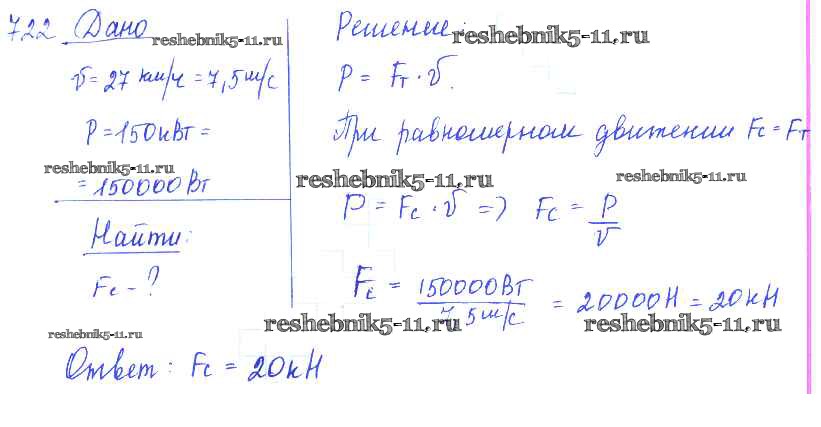 722 Дано
reshebnik5-11.ru
v = 27 км/ч = 7,5 м/с
P = 150 кВт =
reshebnik5-11.ru
= 150000 Вт
Найти:
Fc - ?
reshebnik5-11.ru
Решение:
reshebnik5-11.ru
P = Fт · v.
При равномерном движении Fc = Fт
reshebnik5-11.ru reshebnik5-11.ru
P = Fc · v => Fc = P/v
Fc = 150000 Вт / 7,5 м/с = 20000 Н = 20 кН
reshebnik5-11.ru reshebnik5-11.ru
Ответ: Fc = 20 кН